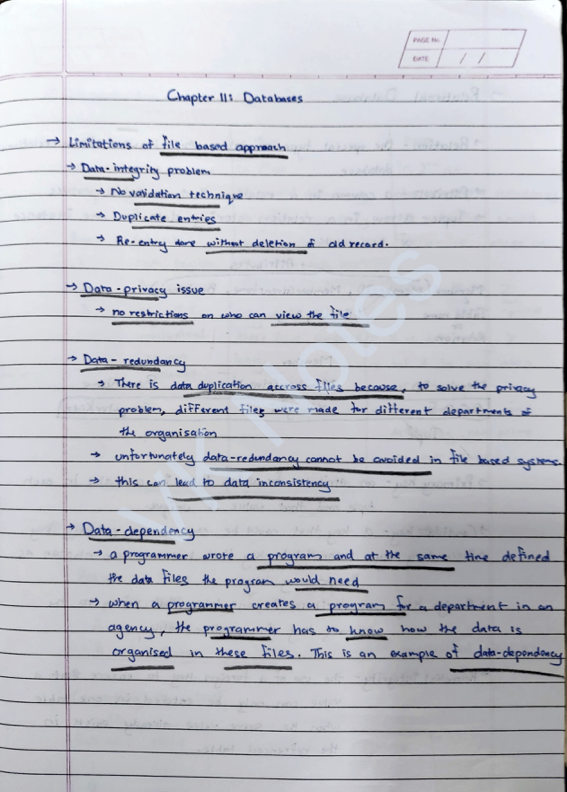 PAGE No.
DATE / /
Chapter 11: Databases
→ Limitations of file based approach
→ Data-integrity problem
→ No validation technique
→ Duplicate entries
→ Re-entry done without deletion of old record.
→ Data-privacy issue
→ no restrictions on who can view the file
→ Data-redundancy
→ There is data duplication accross files because, to solve the privacy
problem, different files were made for different departments of
the organisation
→ unfortunately data-redundancy cannot be avoided in file based systems.
→ this can lead to data inconsistency
→ Data-dependency
→ a programmer wrote a program and at the same time defined
the data files the program would need
→ when a programmer creates a program for a department in an
agency, the programmer has to know how the data is
organised in these files. This is an example of data-dependency
VK Notes